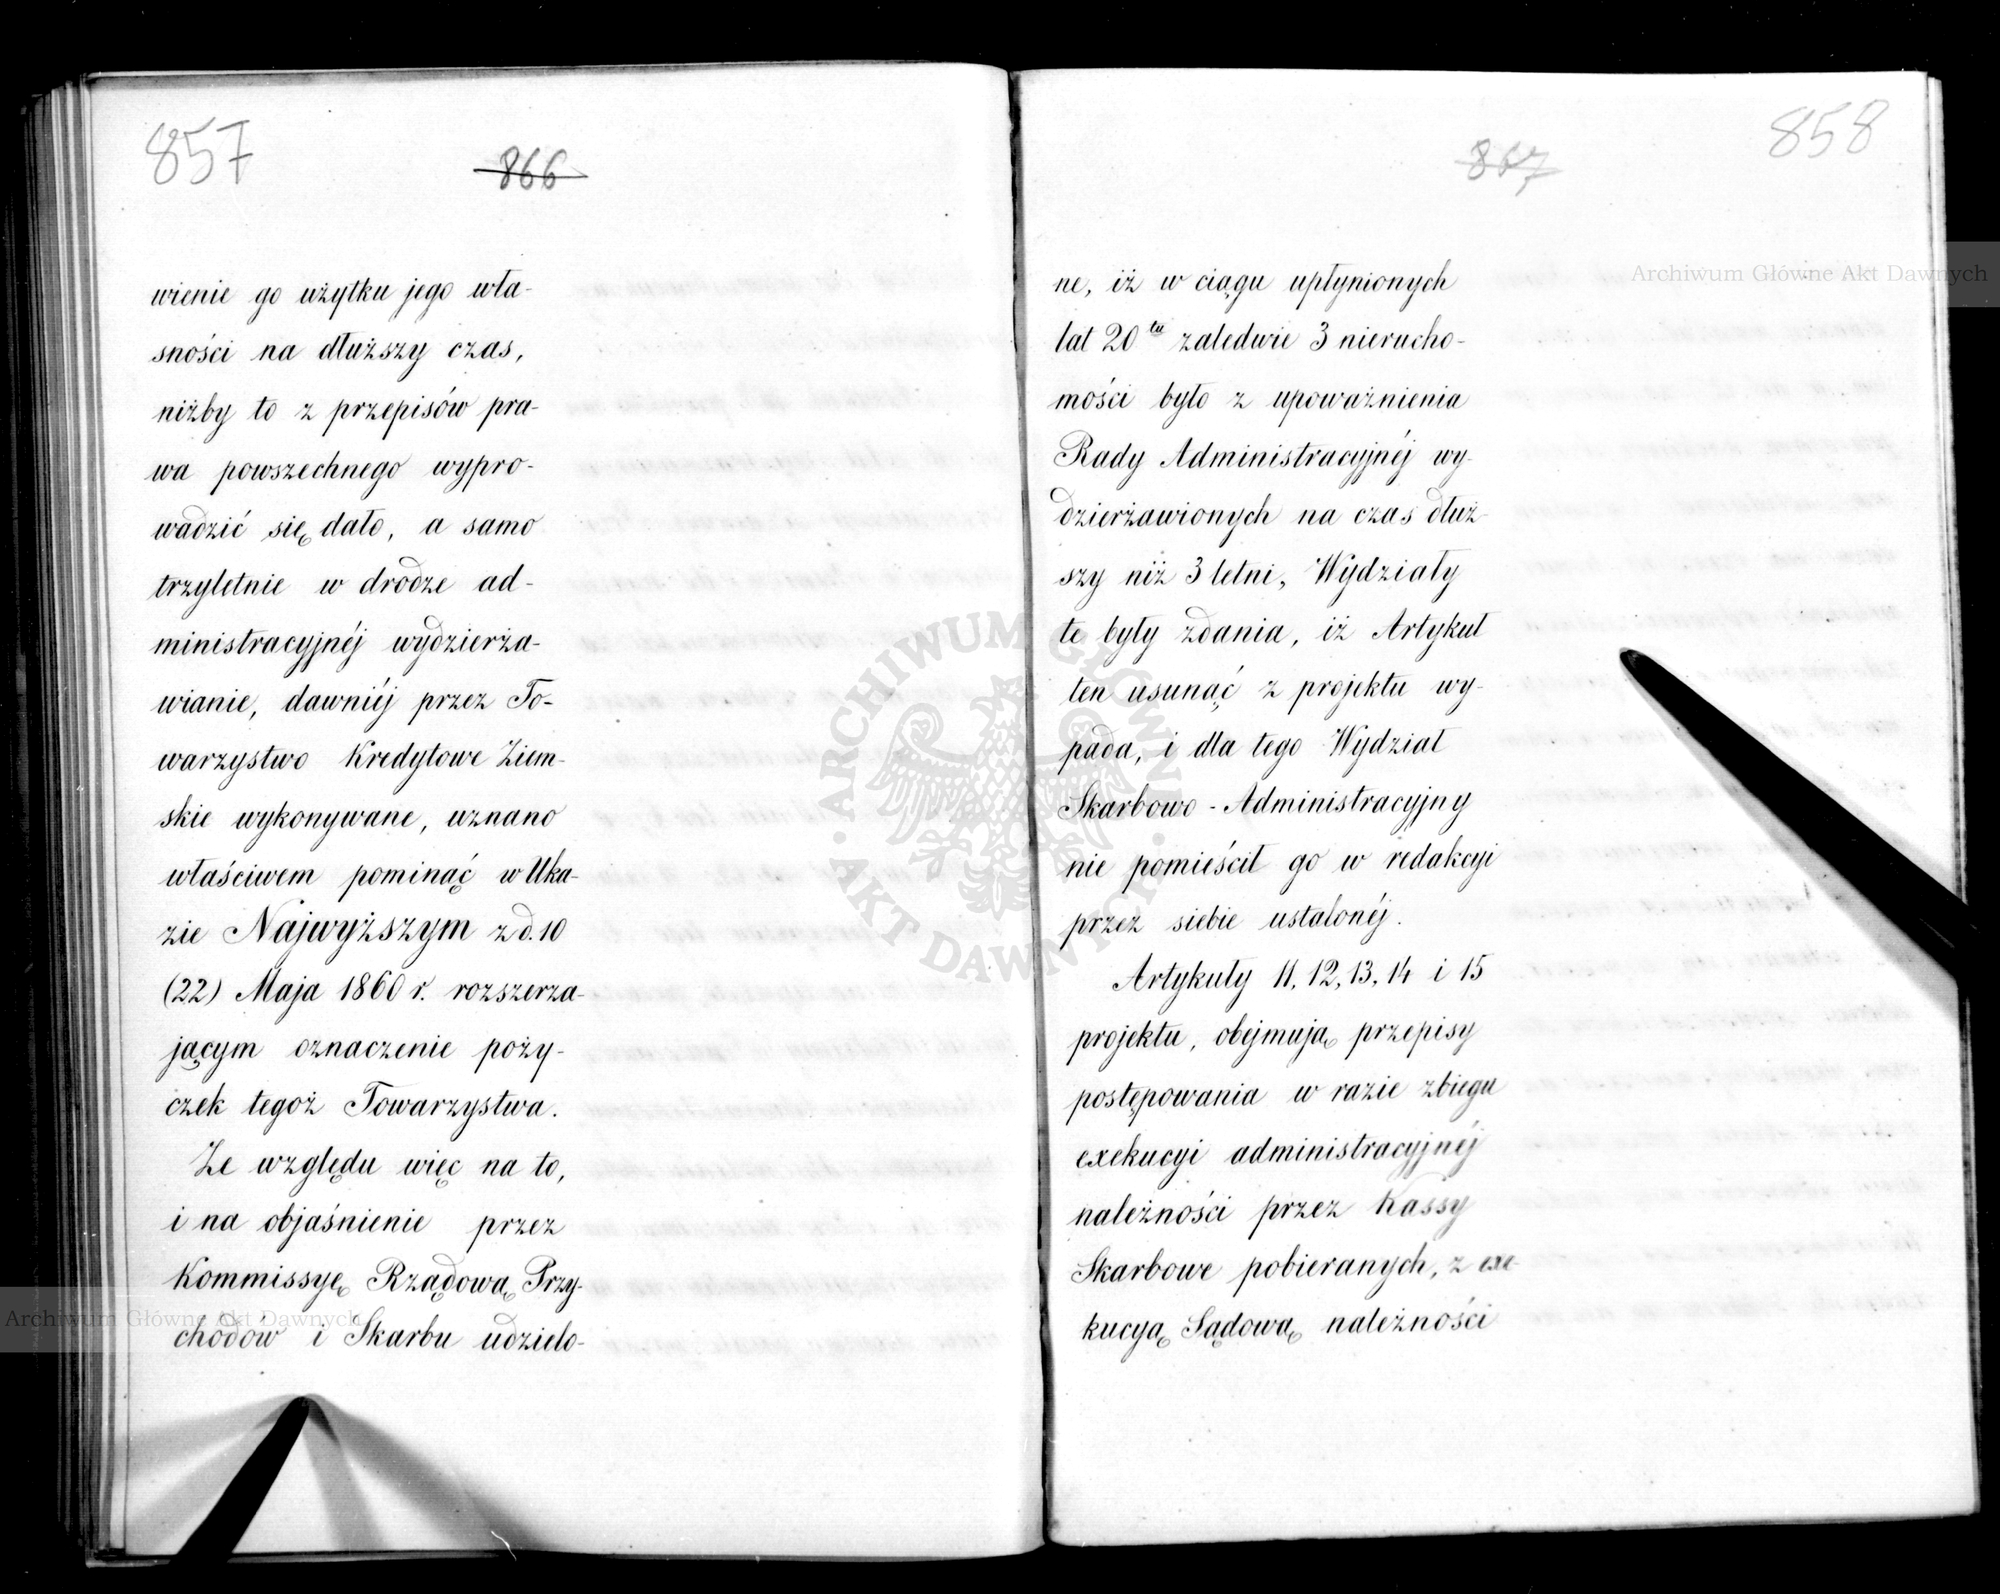 857
866
wienie go użytku jego wła-
sności na dłuższy czas,
niżby to z przepisów pra-
wa powszechnego wypro-
wadzić się dało, a samo
trzyletnie w drodze ad-
ministracyjnéj wydzierża-
wianie, dawniéj przez To-
warzystwo Kredytowe Ziem-
skie wykonywane, uznano
właściwem pominąć w Uka-
zie Najwyższym z d. 10
(22) Maja 1860 r. rozszerza-
jącym oznaczenie poży-
czek tegoż Towarzystwa.
Ze względu więc na to,
i na objaśnienie przez
Kommissyę Rządową Przy-
chodów i Skarbu udzielo-
858
867
ne, iż w ciągu upłynionych
lat 20tu zaledwie 3 nierucho-
mości było z upoważnienia
Rady Administracyjnéj wy-
dzierżawionych na czas dłuż-
szy niż 3 letni, Wydziały
te były zdania, iż Artykuł
ten usunąć z projektu wy-
pada, i dla tego Wydział
Skarbowo - Administracyjny
nie pomieścił go w redakcyi
przez siebie ustalonéj.
Artykuły 11, 12, 13, 14 i 15
projektu, obejmują przepisy
postępowania w razie zbiegu
exekucyi administracyjnéj
należności przez Kassy
Skarbowe pobieranych, z exe-
kucyą Sądową należności
Archiwum Główne Akt Dawnych
Archiwum Główne Akt Dawnych
ARCHIWUM GŁÓWNE AKT DAWNYCH